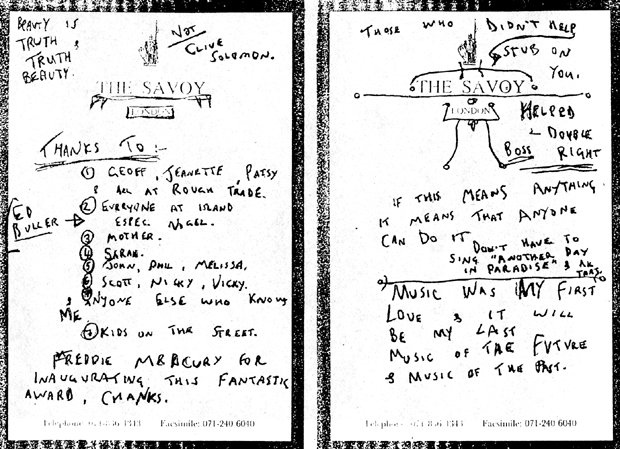 BEAUTY IS
TRUTH &
TRUTH
BEAUTY.
NOT
CLIVE
SOLOMON.
THE SAVOY
LONDON
THANKS TO :-
① GEOFF, JEANETTE, PATSY
& ALL AT ROUGH TRADE.
② EVERYONE AT ISLAND
ESPEC. NIGEL.
ED
BULLER
③ MOTHER.
④ SARAH.
⑤ JOHN, PHIL, MELISSA,
⑥ SCOTT, NICKY, VICKY.
& ANYONE ELSE WHO KNOWS
ME
⑦ KIDS ON THE STREET.
FREDDIE MERCURY FOR
INAUGURATING THIS FANTASTIC
AWARD, CHANKS.
Telephone: 071-836 4343 Facsimile: 071-240 6040
THOSE WHO DIDN'T HELP
STUB ON
YOU.
THE SAVOY
LONDON
HELPED
DOUBLE
BOSS RIGHT
IF THIS MEANS ANYTHING
IT MEANS THAT ANYONE
CAN DO IT
DON'T HAVE TO
SING "ANOTHER DAY
IN PARADISE" &
MUSIC WAS MY FIRST
LOVE & IT WILL
BE MY LAST
MUSIC OF THE FUTURE
& MUSIC OF THE PAST.
Telephone: 071-836 4343 Facsimile: 071-240 6040